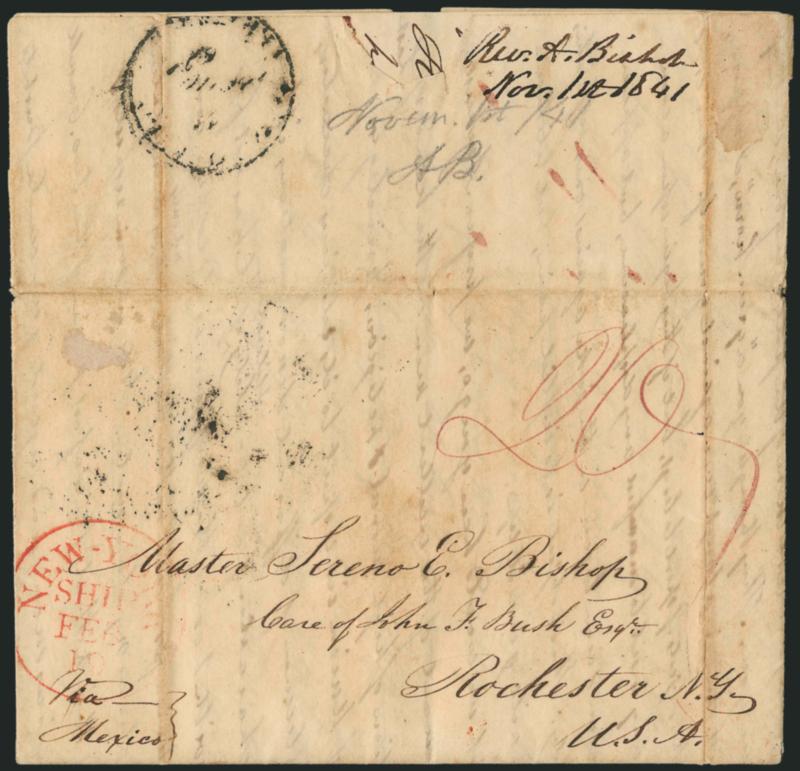 Rev. A. Bishop
Nov. 1st 1841
Novem. 1st /41
AB.
20
NEW-Y
SHIP
FEB
10
Master Sereno E. Bishop
Care of John F. Bush Esqr.
Rochester N.Y.
U.S.A.
Via
Mexico